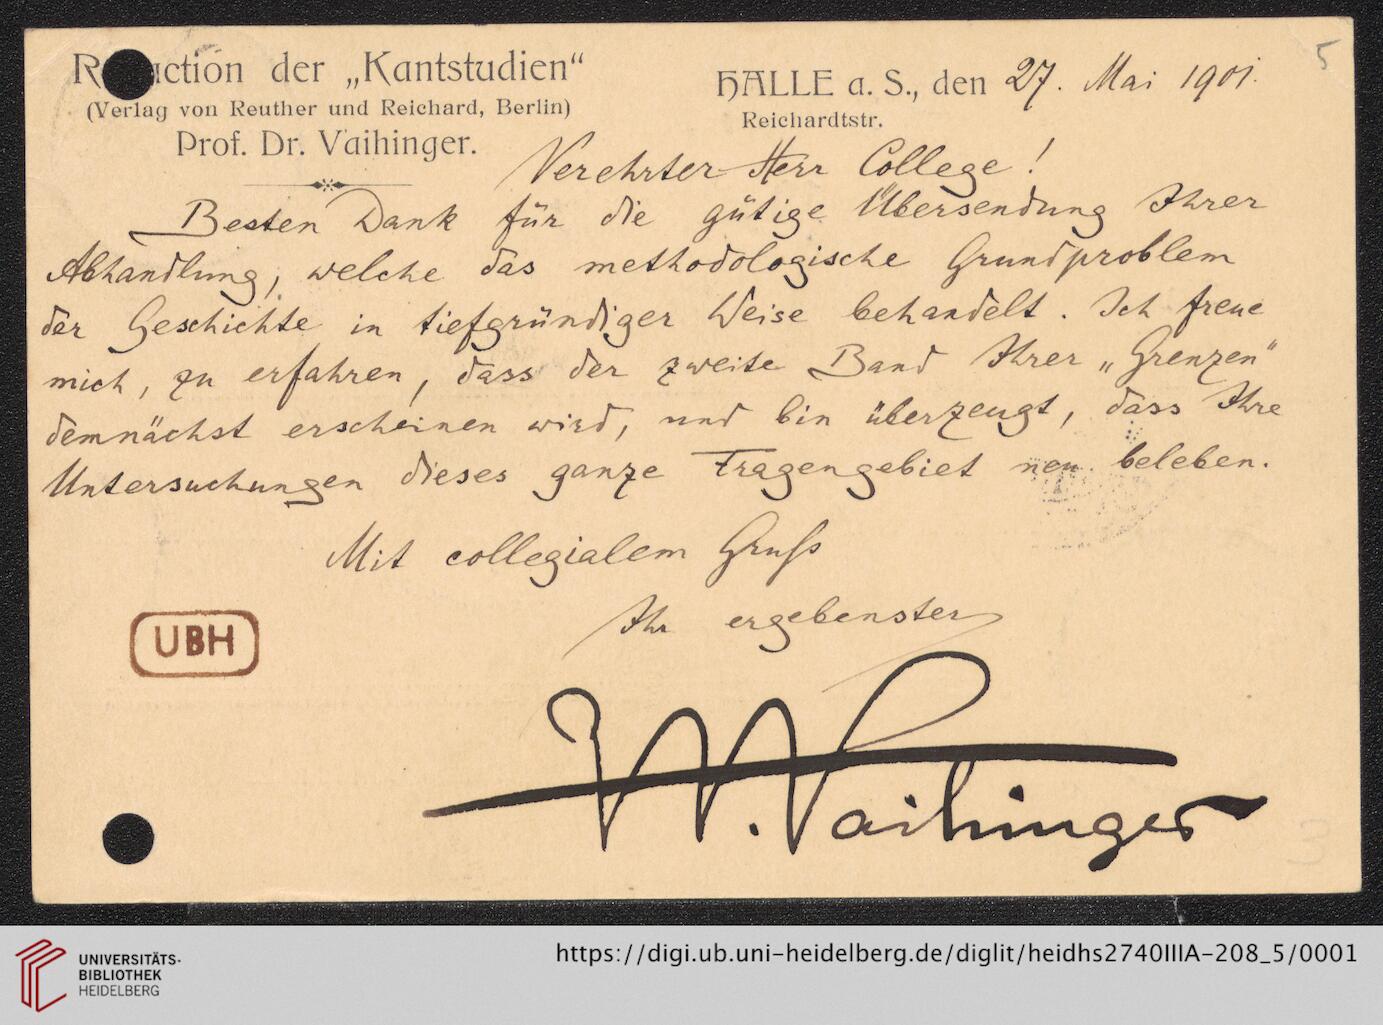 Redaction der „Kantstudien“
(Verlag von Reuther und Reichard, Berlin)
Prof. Dr. Vaihinger.
HALLE a. S., den 27. Mai 1901.
Reichardtstr.
5
Verehrter Herr College!
Besten Dank für die gütige Übersendung Ihrer
Abhandlung, welche das methodologische Grundproblem
der Geschichte in tiefgründiger Weise behandelt. Ich freue
mich, zu erfahren, dass der zweite Band Ihrer „Grenzen“
demnächst erscheinen wird, und bin überzeugt, dass Ihre
Untersuchungen dieses ganze Fragengebiet neu beleben.
Mit collegialem Gruß
Ihr ergebenster
H. Vaihinger
UBH
3
UNIVERSITÄTS-
BIBLIOTHEK
HEIDELBERG
https://digi.ub.uni-heidelberg.de/diglit/heidhs2740IIIA-208_5/0001